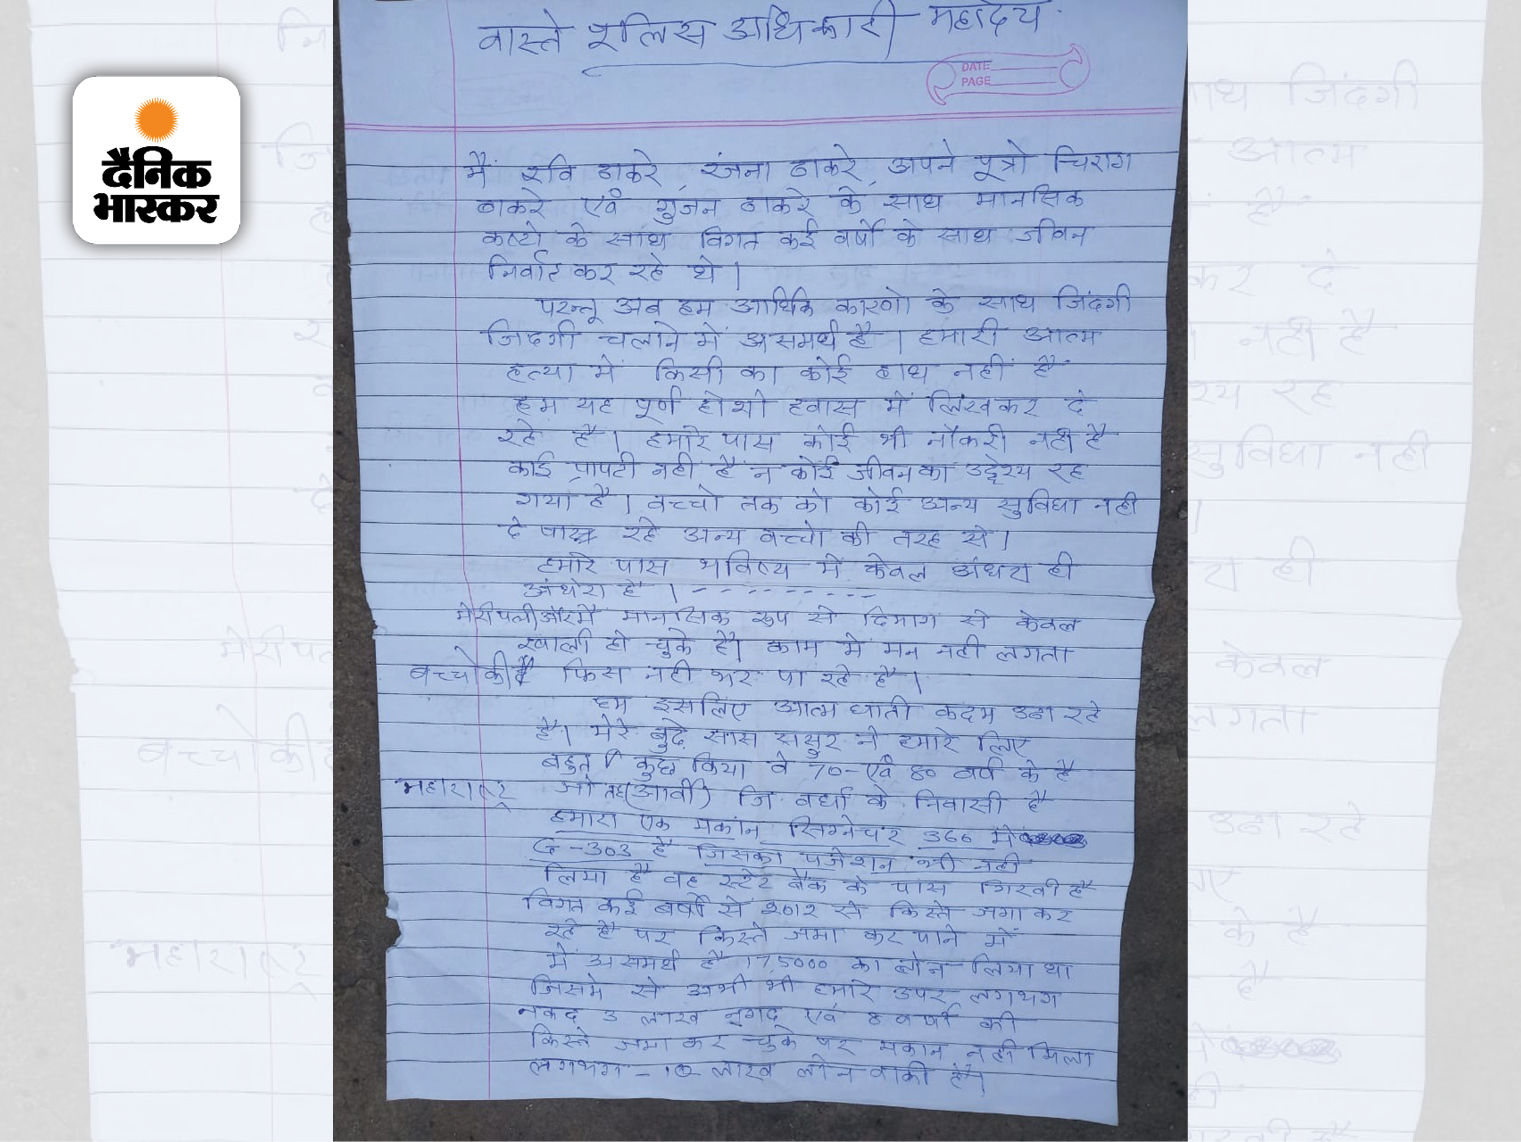 दैनिक
भास्कर
वास्ते पुलिस अधिकारी महोदय
DATE
PAGE
मैं रवि ठाकरे, रंजना ठाकरे, अपने पूत्रो चिराग
ठाकरे एवं गुंजन ठाकरे के साथ मानसिक
कष्टो के साथ विगत कई वर्षो के साथ जीवन
निर्वाह कर रहे थे।
परन्तू अब हम आर्थिक कारणो के साथ जिंदगी
जिदगी चलाने में असमर्थ है। हमारी आत्म
हत्या में किसी का कोई हाथ नहीं है
हम यह पूर्ण होशो हवास में लिखकर दे
रहे है। हमारे पास कोई भी नौकरी नही है
कोई प्रापटी नही है न कोई जीवन का उद्देश्य रह
गया है। बच्चो तक को कोई अन्य सुविधा नही
दे पा रहे अन्य बच्चो की तरह से।
हमारे पास भविष्य में केवल अंधेरा ही
अंधेरा है।----------
मेरी पत्नी और मै मानसिक रूप से दिमाग से केवल
खाली हो चुके है। काम में मन नही लगता
बच्चो की फिस नही भर पा रहे है।
हम इसलिए आत्म घाती कदम उठा रहे
है। मेरे बुढे सास ससुर ने हमारे लिए
बहुत कुछ किया वे 70-एवं 80 वर्ष के है
महाराष्ट्र जो तह(आर्वी) जि. वर्धा के निवासी है
हमारा एक मकान सिग्नेचर 366 में
G-303 है जिसका पजेशन भी नही
लिया है वह स्टेट बैंक के पास गिरवी है
विगत कई बर्षो से 2012 से किस्ते जमा कर
रहे है पर किस्ते जमा कर पाने में
में असमर्थ है 175000 का लोन लिया था
जिसमे से अभी भी हमारे उपर लगभग
नकद 3 लाख नगद एवं 8 वर्षो की
किस्ते जमा कर चुके पर मकान नही मिला
लगभग - 10 लाख लोन बाकी है।